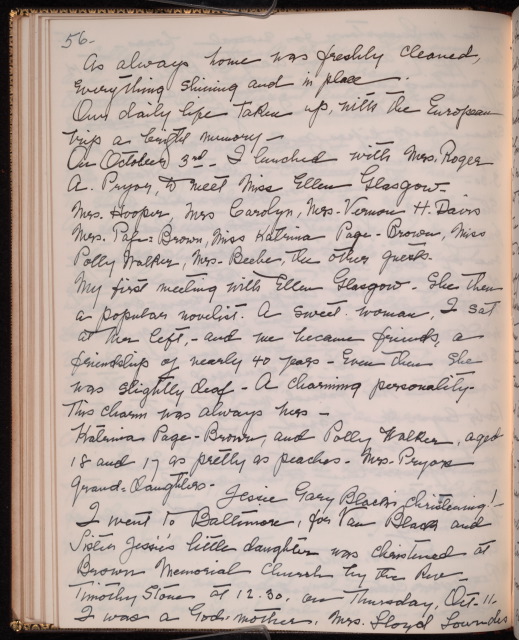 56-
As always home was freshly cleaned,
Everything shining and in place.
Our daily life taken up, with the European
trip a bright memory-
On October 3rd- I lunched with Mrs. Roger
A. Pryor, to meet Miss Ellen Glasgow-
Mrs. Hooper, Mrs Carolyn, Mrs- Vernon H. Davis
Mrs. Page-Brown, Miss Katrina Page-Brown, Miss
Polly Walker, Mrs- Beebe, the other guests.
My first meeting with Ellen Glasgow- She then
a popular novelist. A sweet woman, I sat
at her left,- and we became friends, a
friendship of nearly 40 years- Even then she
was slightly deaf- A charming personality-
This charm was always hers-
Katrina Page-Brown, and Polly Walker, aged
18 and 17 as pretty as peaches- Mrs- Pryors
Grand-daughters-
Jessie Gary Black's Christening!-
I went to Baltimore, for Van Black and
Sister Jessie's little daughter was christened at
Brown Memorial Church by the Rev-
Timothy Stone at 12.30, on Thursday, Oct- 11-
I was a God-mother, Mrs. Lloyd Lowndes